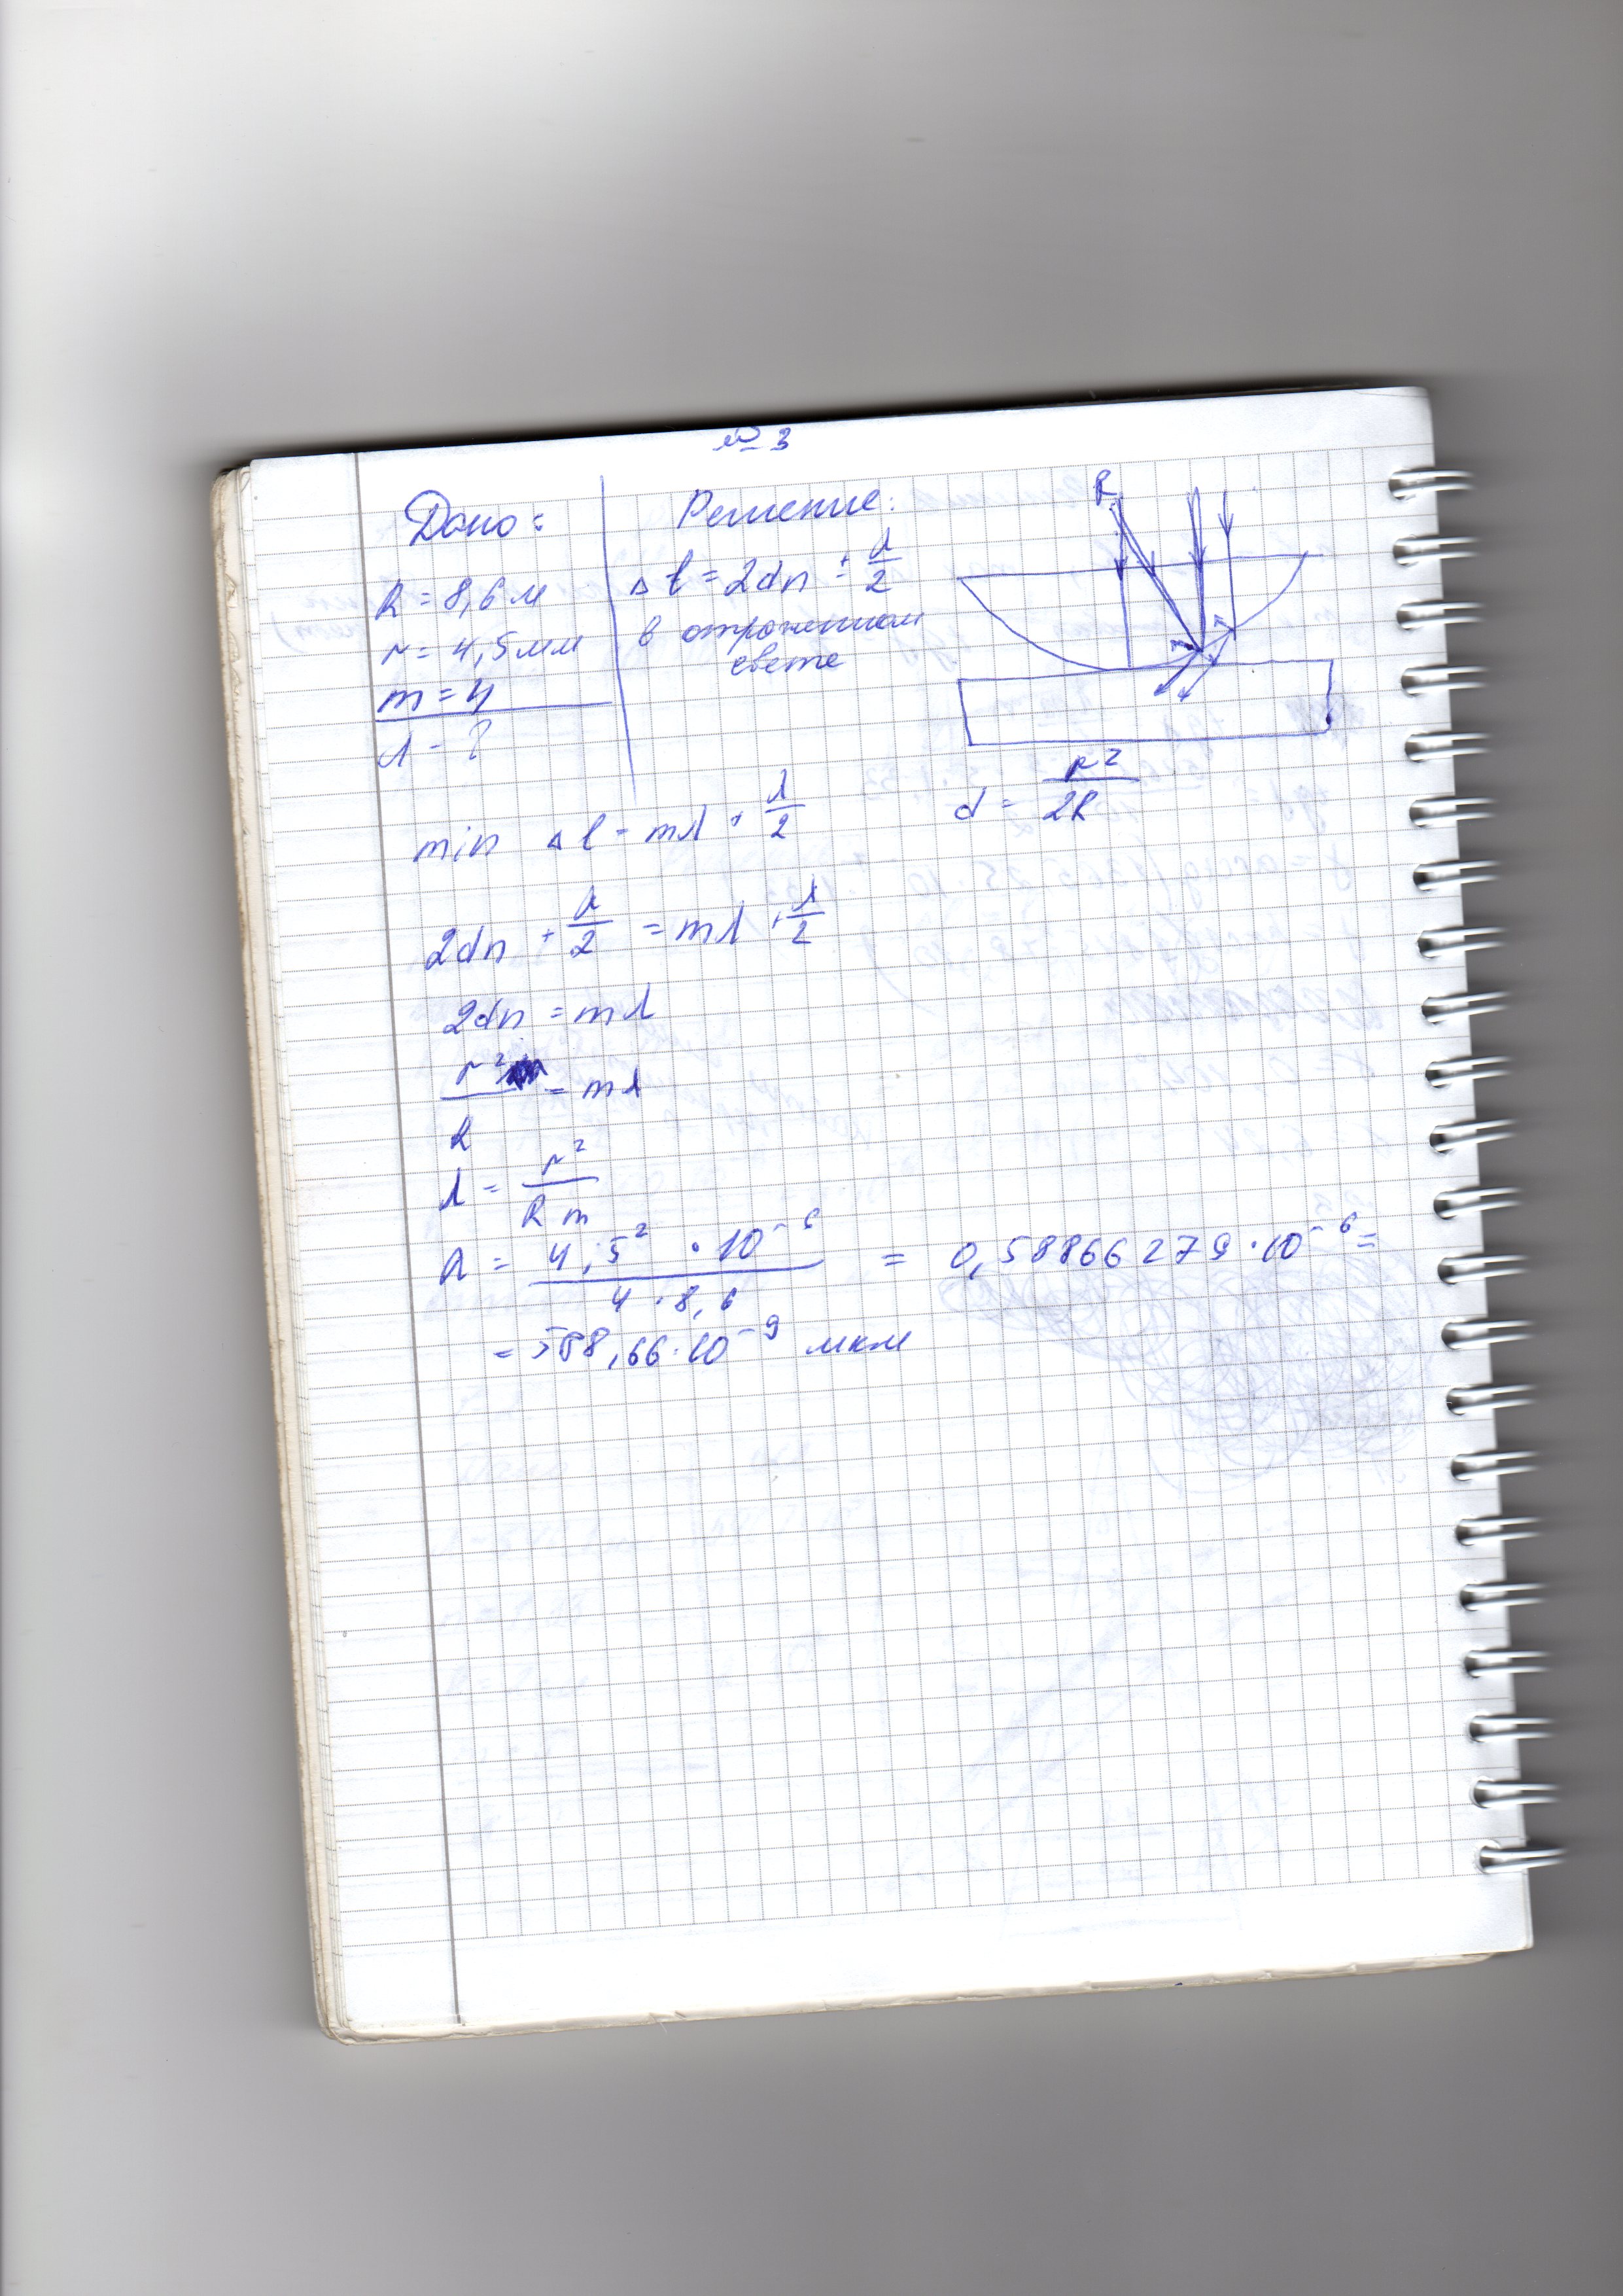 № 3
Дано:
R = 8,6 м
r = 4,5 мм
m = 4
λ - ?
Решение:
Δℓ = 2dn + λ/2
в отраженном
свете
R
d = r²/2R
min Δℓ = mλ + λ/2
2dn + λ/2 = mλ + λ/2
2dn = mλ
r²/R = mλ
λ = r²/Rm
λ = 4,5² · 10⁻⁶ / 4 · 8,6 = 0,58866279 · 10⁻⁶ =
= 588,66 · 10⁻⁹ мкм